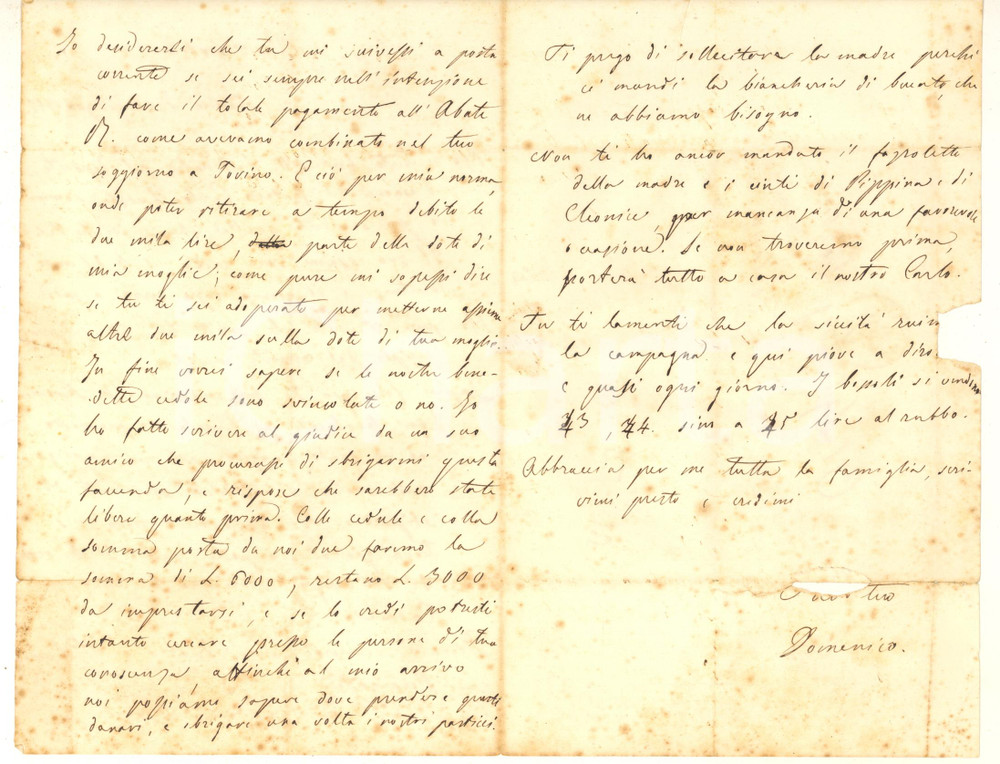 Io desidererei che tu mi scrivessi a posta
corrente se sei sempre nell'intenzione
di fare il totale pagamento all'Abate
come avevamo combinato nel tuo
soggiorno a Torino. E ciò per mia norma,
onde poter ritirare a tempo debito le
due mila lire, parte della dote di
mia moglie; come pure mi sapessi dire
se tu ti sei adoperato per metterne assieme
altre due mila sulla dote di tua moglie.
In fine vorrei sapere se le nostre bene-
dette cedole sono svincolate o no. Io
ho fatto scrivere al giudice da un suo
amico che procurassi di sbrigarmi questa
facenda, e rispose che sarebbero state
libere quanto prima. Colle cedule e colla
somma posta da noi due faremo la
somma di L. 6000, restano L. 3000
da imprestarsi, e se lo credi potresti
intanto cercare presso le persone di tua
conoscenza affinchè al mio arrivo
noi possiamo sapere dove prendere questi
danari, e sbrigare una volta i nostri pasticci.
Ti prego di sollecitare la madre perchè
ci mandi la biancheria di bucato, che
ne abbiamo bisogno.
Non ti ho ancor mandato il fazoletto
della madre e i cinti di Pippina e di
Cleonice, per mancanza di una favorevole
occasione. Se non troveremo prima,
porterà tutto a casa il nostro Carlo.
Tu ti lamenti che la siccità
la campagna e qui piove a
e quasi ogni giorno. I bozoli si vendono
73, 74. sino a 75 lire al rubbo.
Abbraccia per me tutta la famiglia, scri-
vimi presto e credimi
tuo
Domenico.